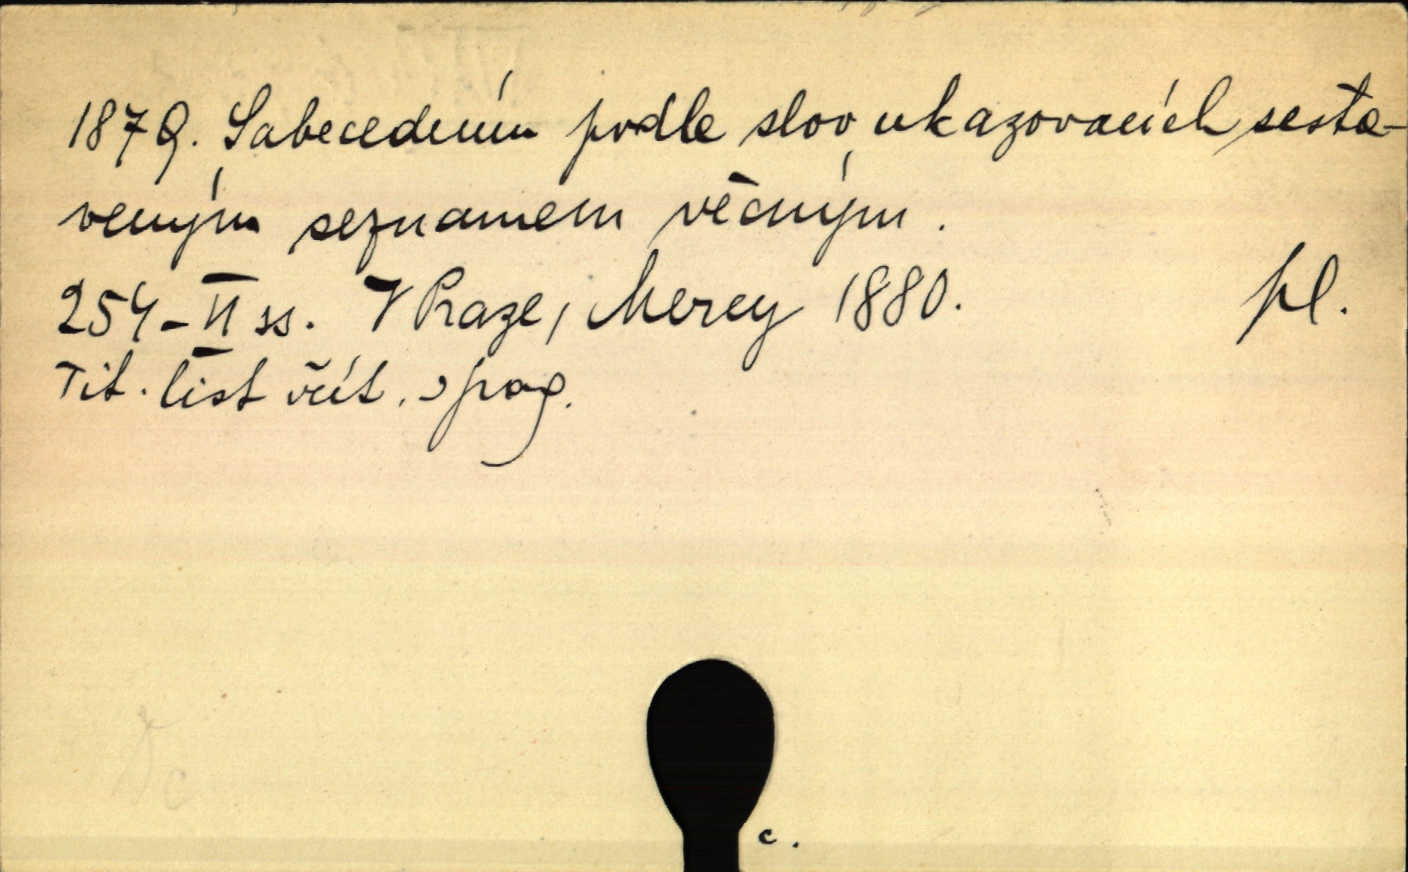 1879. S abecedním podle slov ukazovacích sesta-
veným seznamem věcným.
254-II ss. V Praze, Mercy 1880. pl.
Tit. list včít. v pag.
c.